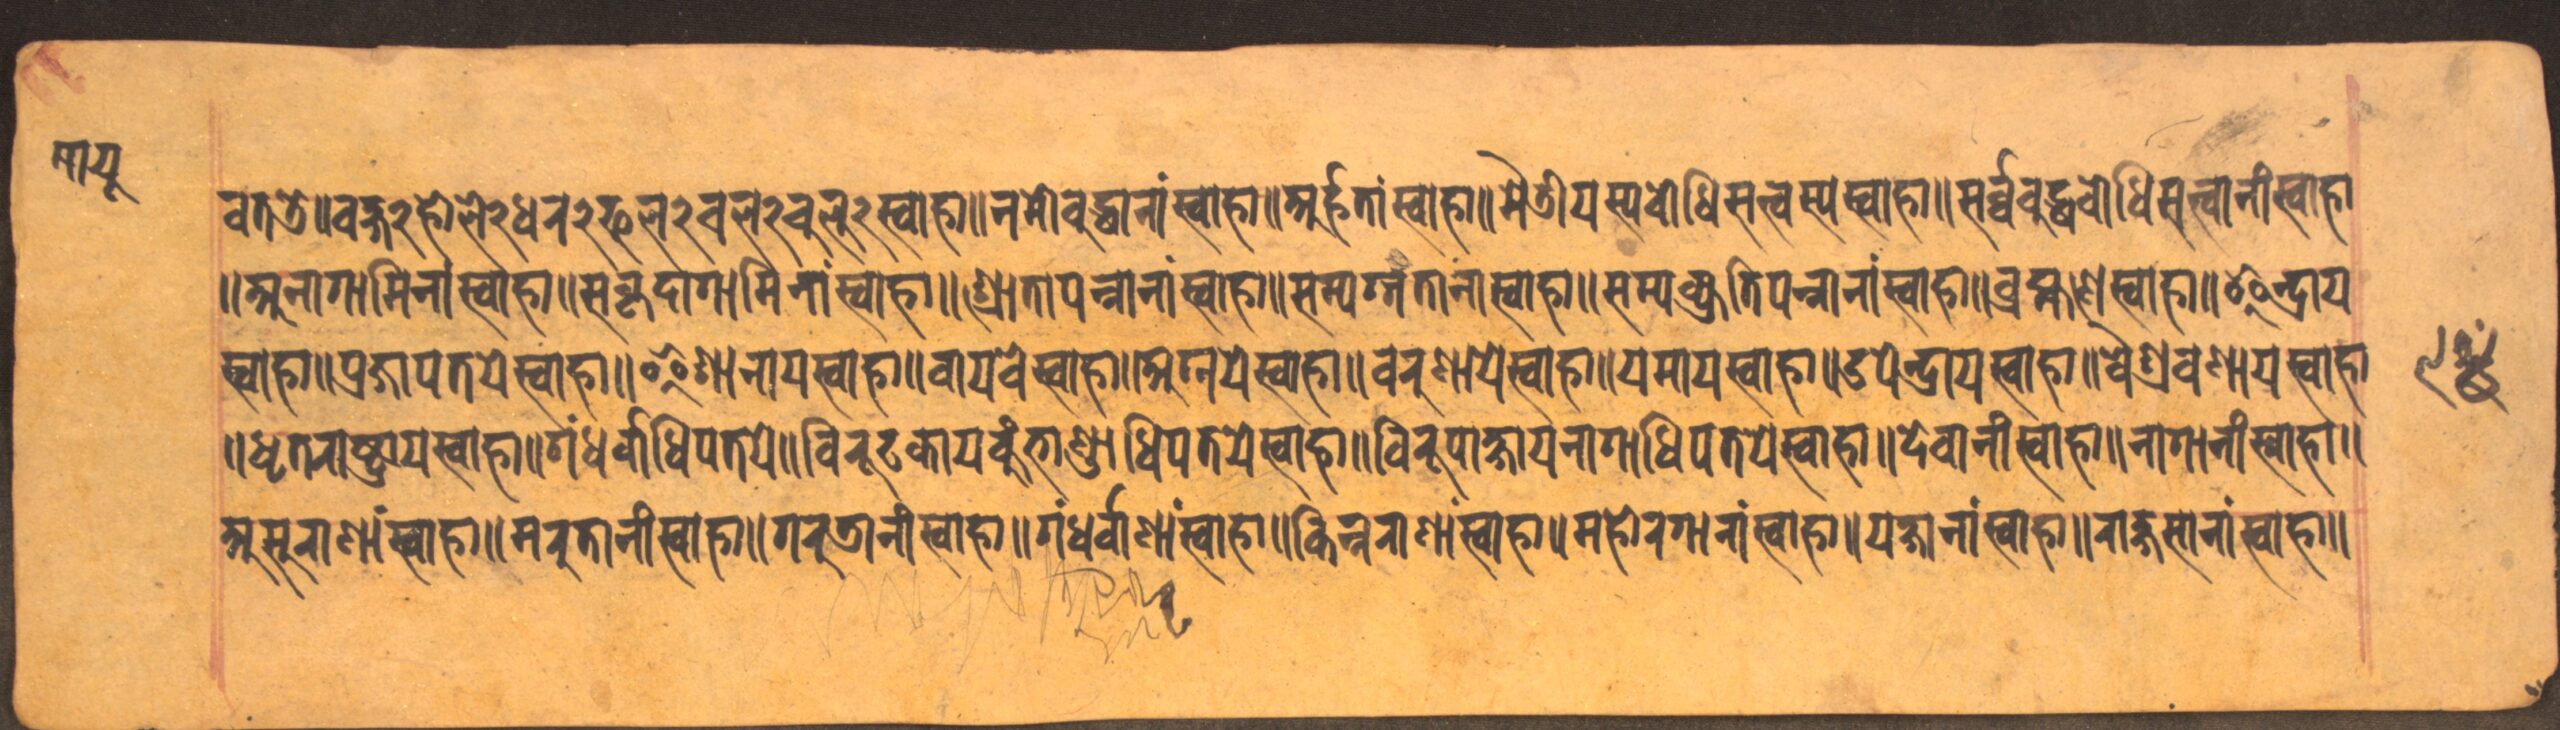 मायू
वतते॥वक्ष२होले२धन२फल२वल२वुलु२स्वाहा॥नमोवुद्धानांस्वाहा॥अर्हतांस्वाहा॥मैत्रीयस्यवोधिसत्वस्यस्वाहा॥सर्व्ववुद्धवोधिसत्वानांस्वाहा
॥अनागामिनांस्वाहा॥सकृदागामिनांस्वाहा॥श्रोतापन्नानांस्वाहा॥सम्यग्गतानांस्वाहा॥सम्यक्प्रतिपन्नानांस्वाहा॥व्रह्मणेस्वाहा॥इन्द्राय
स्वाहा॥प्रजापतयेस्वाहा॥ईशानायस्वाहा॥वायवेस्वाहा॥अग्नयेस्वाहा॥वरुणायेस्वाहा॥यमायस्वाहा॥उपेन्द्रायस्वाहा॥वैश्रवणायस्वाहा
॥धृतराष्ट्रायस्वाहा॥गंधर्वाधिपतये॥विरूढकायकुंभाण्डाधिपतयेस्वाहा॥विरूपाक्षायनागाधिपतयेस्वाहा॥देवानांस्वाहा॥नागानांस्वाहा॥
असुराणांस्वाहा॥मरुतानांस्वाहा॥गरुडानांस्वाहा॥गंधर्वाणांस्वाहा॥किन्नराणांस्वाहा॥महोरगानांस्वाहा॥यक्षानांस्वाहा॥राक्षसानांस्वाहा॥